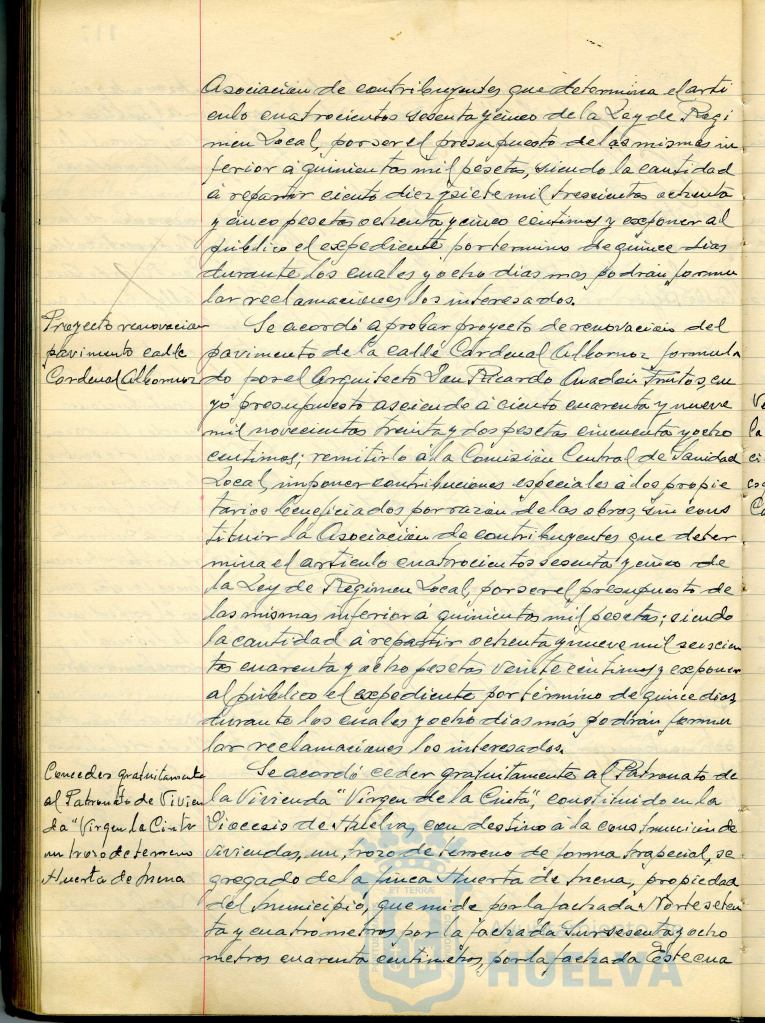 Asociación de contribuyentes que determina el arti
culo cuatrocientos sesenta y cinco de la Ley de Regi
men Local, por ser el presupuesto de las mismas in
ferior á quinientas mil pesetas, siendo la cantidad
á repartir ciento diez y siete mil trescientas ochenta
y cinco pesetas ochenta y cinco centimos y exponer al
público el expediente por termino de quince dias
durante los cuales y ocho dias mas podrán formu
lar reclamaciones los interesados.
Proyecto renovacion
pavimento calle
Cardenal Albornoz
Se acordó aprobar proyecto de renovación del
pavimento de la calle Cardenal Albornoz formula
do por el Arquitecto Don Ricardo Anadón Frutos, cu
yo presupuesto asciende á ciento cuarenta y nueve
mil novecientas treinta y dos pesetas cincuenta y ocho
centimos; remitirlo á la Comisión Central de Sanidad
Local, imponer contribuciones especiales a los propie
tarios beneficiados por razón de las obras, sin cons
tituir la Asociación de contribuyentes que deter
mina el articulo cuatrocientos sesenta y cinco de
la Ley de Regimen Local, por ser el presupuesto de
las mismas inferior á quinientas mil pesetas; siendo
la cantidad á repartir ochenta y nueve mil seiscien
tas cuarenta y ocho pesetas veinte centimos y exponer
al público el expediente por término de quince dias,
durante los cuales y ocho dias más podrán formu
lar reclamaciones los interesados.
Conceder gratuitamente
al Patronato de Vivien
da "Virgen la Cinta
un trozo de terreno
Huerta de Mena
Se acordó ceder gratuitamente al Patronato de
la Vivienda "Virgen de la Cinta", constituido en la
Diocesis de Huelva, con destino á la construcción de
viviendas, un trozo de terreno de forma trapecial, se
gregado de la finca Huerta de Mena, propiedad
del Municipio, que mide por la fachada Norte seten
ta y cuatro metros por la fachada Sur sesenta y ocho
metros cuarenta centimetros, por la fachada Este cua
HUELVA